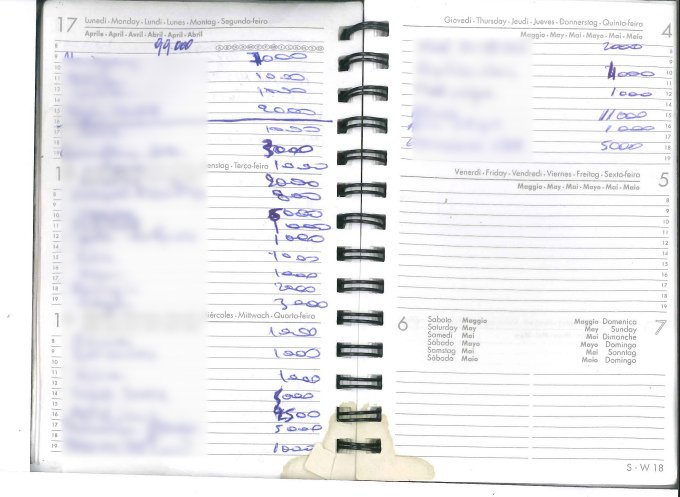 17 Lunedì - Monday - Lundi - Lunes - Montag - Segundo-feira
Aprile - April - Avril - Abril - April - Abril
99.000
8
9
1000
10
1000
11
12
1000
2000
1000
3000
enstag - Terça-feira 1000
1
2000
800
5000
1000
1000
1000
1000
2000
3000
iércoles - Mittwoch - Quarta-feira
1
1000
1000
1000
5000
2500
5000
1000
Giovedì - Thursday - Jeudi - Jueves - Donnerstag - Quinta-feira 4
Maggio - May - Mai - Mayo - Mai - Maio
2000
8
9
1000
10
11
1000
12
13
14
11000
15
1000
16
17
5000
18
19
Venerdì - Friday - Vendredi - Viernes - Freitag - Sexta-feira 5
Maggio - May - Mai - Mayo - Mai - Maio
8
9
10
11
12
13
14
15
16
17
18
19
6
Sabato Maggio
Saturday May
Samedi Mai
Sábado Mayo
Samstag Mai
Sábado Maio
Maggio Domenica 7
May Sunday
Mai Dimanche
Mayo Domingo
Mai Sonntag
Maio Domingo
S - W 18